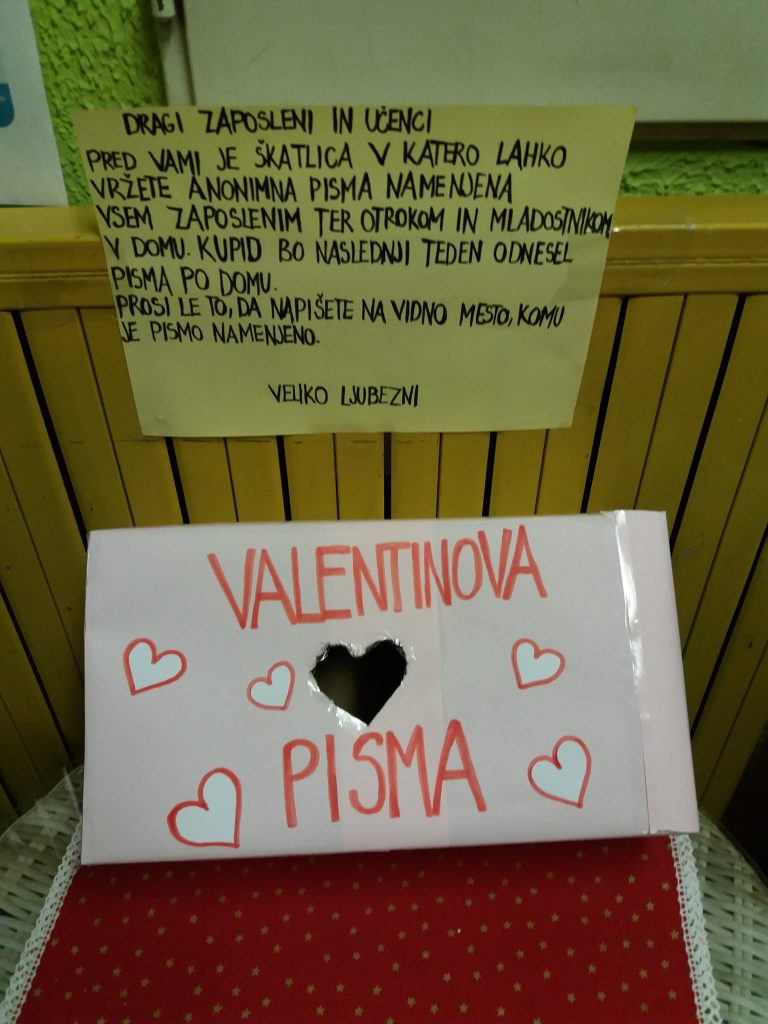 DRAGI ZAPOSLENI IN UČENCI
PRED VAMI JE ŠKATLICA V KATERO LAHKO
VRŽETE ANONIMNA PISMA NAMENJENA
VSEM ZAPOSLENIM TER OTROKOM IN MLADOSTNIKOM
V DOMU. KUPID BO NASLEDNJI TEDEN ODNESEL
PISMA PO DOMU.
PROSI LE TO, DA NAPIŠETE NA VIDNO MESTO, KOMU
JE PISMO NAMENJENO.
VELIKO LJUBEZNI
VALENTINOVA
PISMA